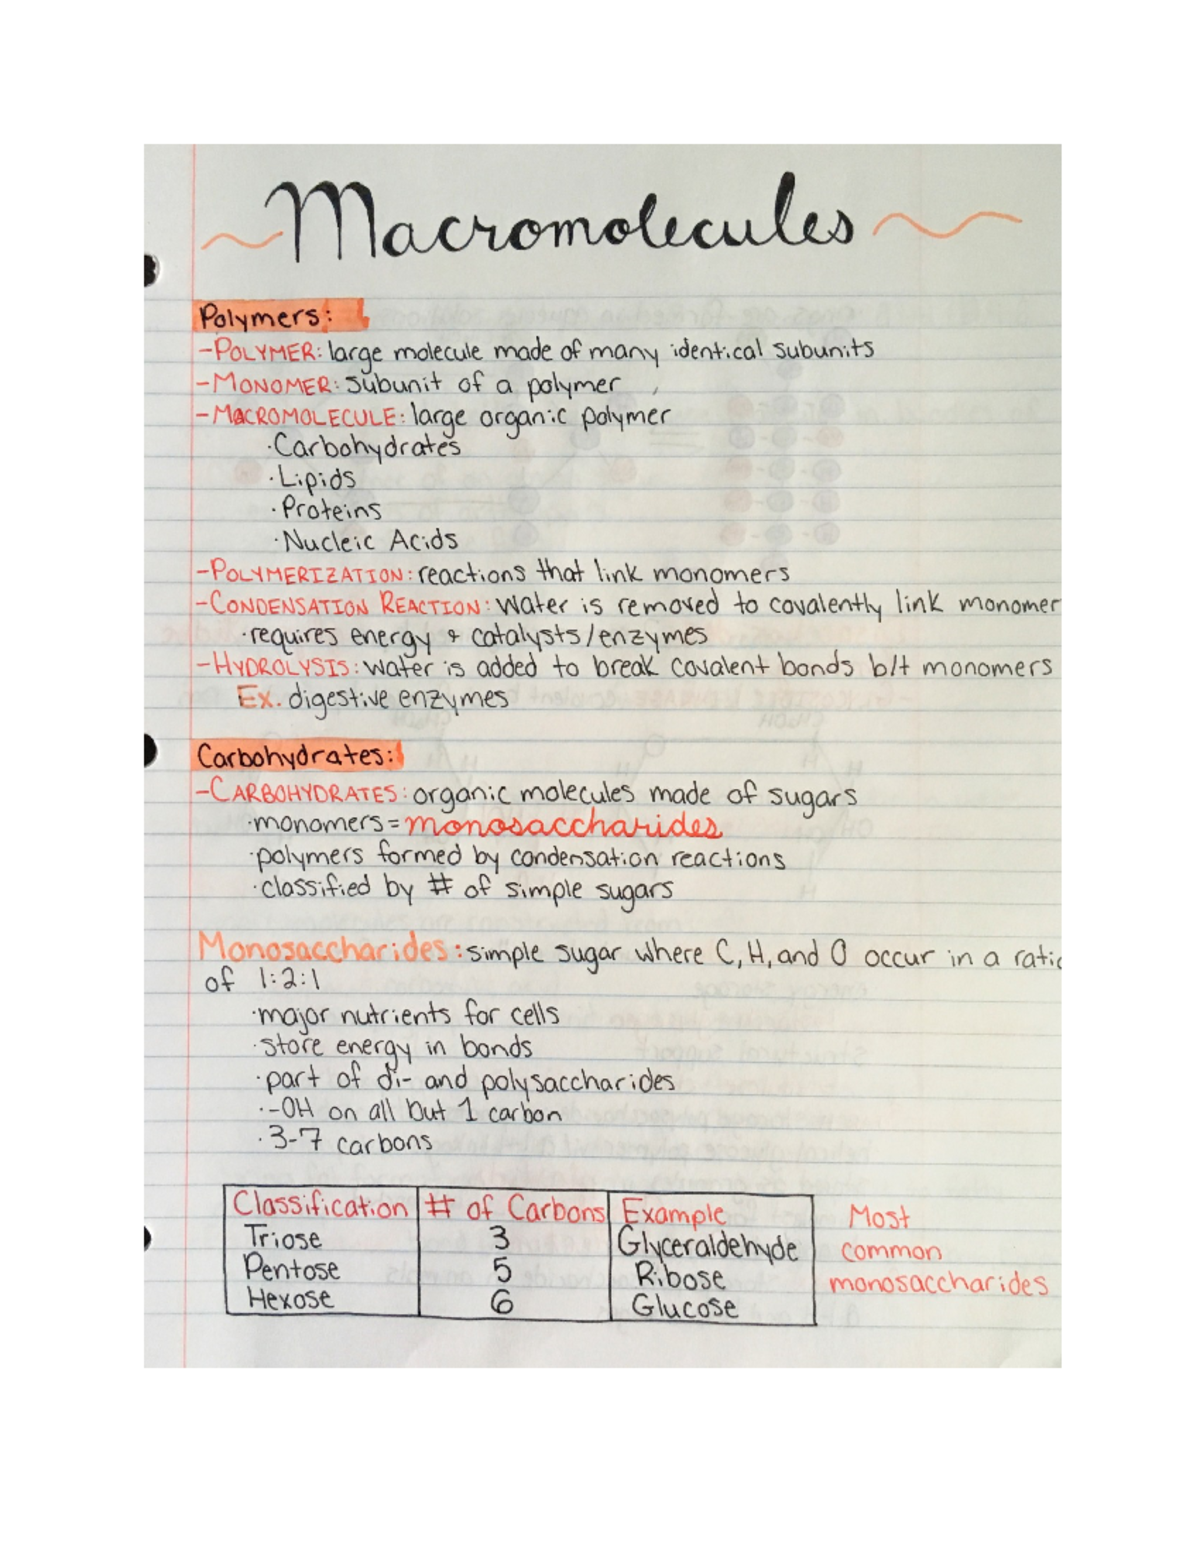 Macromolecules
Polymers:
-POLYMER: large molecule made of many identical subunits
-MONOMER: subunit of a polymer
-MACROMOLECULE: large organic polymer
·Carbohydrates
·Lipids
·Proteins
·Nucleic Acids
-POLYMERIZATION: reactions that link monomers
-CONDENSATION REACTION: Water is removed to covalently link monomer
·requires energy & catalysts/enzymes
-HYDROLYSIS: water is added to break covalent bonds b/t monomers
Ex. digestive enzymes
Carbohydrates:
-CARBOHYDRATES: organic molecules made of sugars
·monomers = monosaccharides
·polymers formed by condensation reactions
·classified by # of simple sugars
Monosaccharides: simple sugar where C, H, and O occur in a ratio
of 1:2:1
·major nutrients for cells
·store energy in bonds
·part of di- and polysaccharides
·-OH on all but 1 carbon
·3-7 carbons
Classification # of Carbons Example
Triose 3 Glyceraldehyde
Pentose 5 Ribose
Hexose 6 Glucose
Most
common
monosaccharides